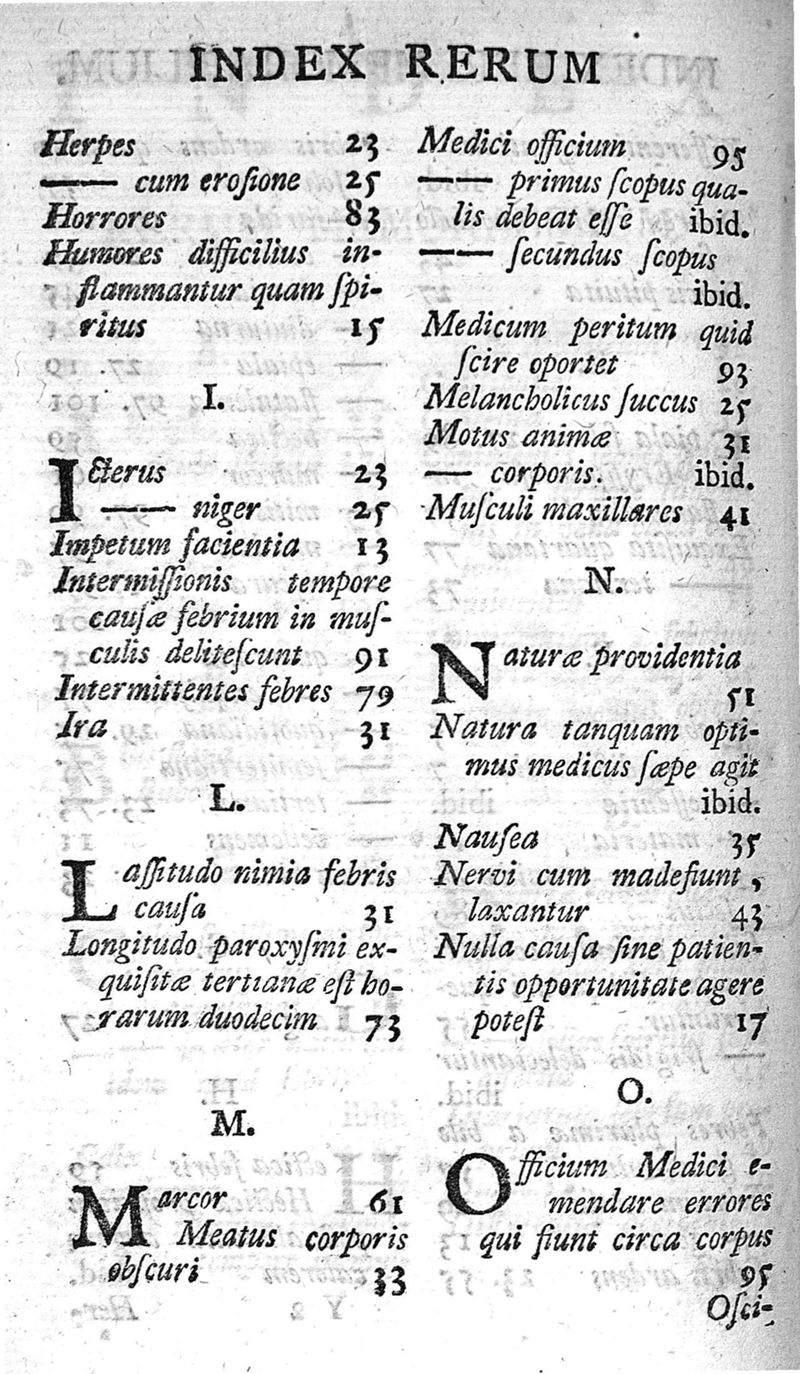 INDEX RERUM
Herpes 23
—— cum eroſione 25
Horrores 83
Humores difficilius in-
flammantur quam ſpi-
ritus 15
I.
Icterus 23
—— niger 25
Impetum facientia 13
Intermiſſionis tempore
cauſæ febrium in muſ-
culis deliteſcunt 91
Intermittentes febres 79
Ira 31
L.
Laſſitudo nimia febris
cauſa 31
Longitudo paroxyſmi ex-
quiſitæ tertianæ eſt ho-
rarum duodecim 73
M.
Marcor 61
Meatus corporis
obſcuri 33
Medici officium 95
—— primus ſcopus qua-
lis debeat eſſe ibid.
—— ſecundus ſcopus
ibid.
Medicum peritum quid
ſcire oportet 93
Melancholicus ſuccus 25
Motus animæ 31
—— corporis. ibid.
Muſculi maxillares 41
N.
Naturæ providentia
51
Natura tanquam opti-
mus medicus ſæpe agit
ibid.
Nauſea 35
Nervi cum madefiunt,
laxantur 43
Nulla cauſa ſine patien-
tis opportunitate agere
poteſt 17
O.
Officium Medici e-
mendare errores
qui fiunt circa corpus
95
Oſci-